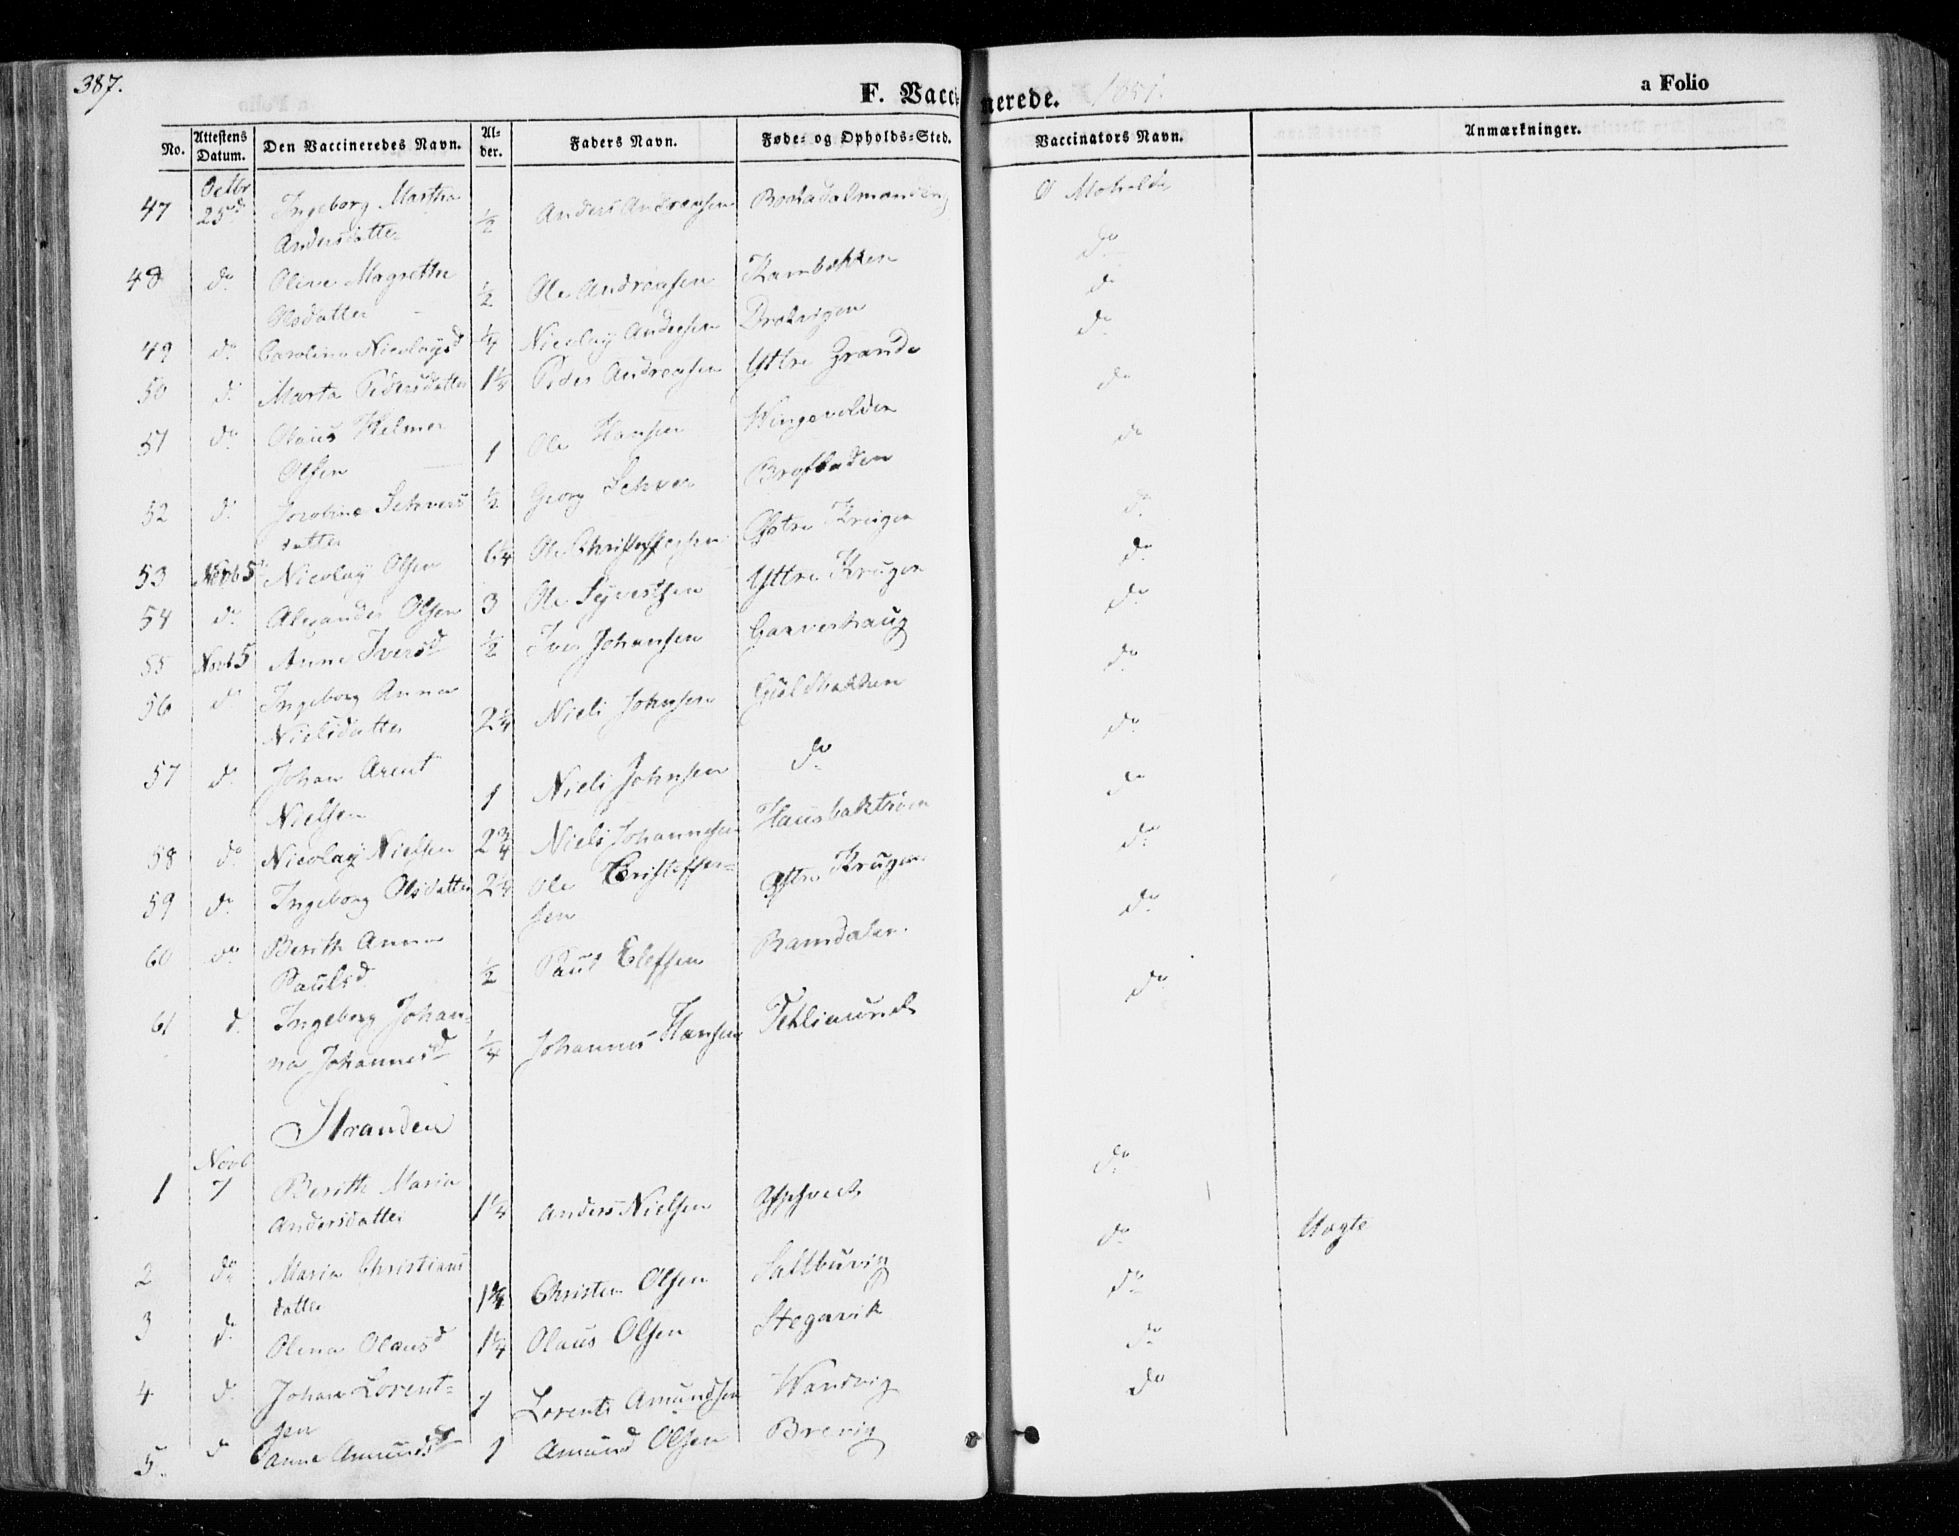 387.
F. Vaccinerede. 1851.
a Folio
No. Attestens Datum. Den Vaccineredes Navn. Alder. Faders Navn. Føde- og Opholds-Sted. Vaccinators Navn. Anmærkninger.
Octbr
47 25d Ingeborg Martha ½ Anders Andreasen
Andersdatter
48 do Oline Magrethe ½ Ole Andreasen Rambekken do
Olsdatter
49 do Carolina Nicolaysd ¼ Nicolay Andersen do
50 do Marta Pedersdatter 1¼ Peder Andreasen Yttre Grande do
51 do Olaus Helmer 1 Ole Hansen Wingevolden do
Olsen
52 do ½ Georg do
datter
53 Novb 5 Nicolay Olsen 6¼ Ole Christophersen Østre Krugen do
54 do Alexander Olsen 3 Ole Syvertsen Yttre Krugen do
55 Novb 5 Anne Iversd ½ Iver Johansen Garverhaug do
56 do Ingeborg Anna 2¼ Niels Johnsen Guldbakken do
Nielsdatter
57 do Johan Arent 1 Niels Johnsen do do
Nielsen
58 do Nicolay Nielsen 2¾ Niels Johannesen do
59 do Ingeborg Olsdatter 2¼ Ole Christoffer- Østre Krugen do
sen
60 do Berith Anna ½ Paul Elefsen Ramdalen do
Paulsd
61 do Ingeborg Johan- ¼ Johannes Hansen do
na Johannesd
Stranden
Novb
1 7 Berith Maria 1¼ Anders Nielsen do
Andersdatter
2 do Maria Christians 1¾ Christen Olsen Saltbuvig do Uægte
datter
3 do Olena Olausd 1¼ Olaus Olsen Stegavik do
4 do Johan Lorent- 1 Lorents Amundsen Wandvig do
sen
5. do Anne Amundsd 1 Amund Olsen Brevig do